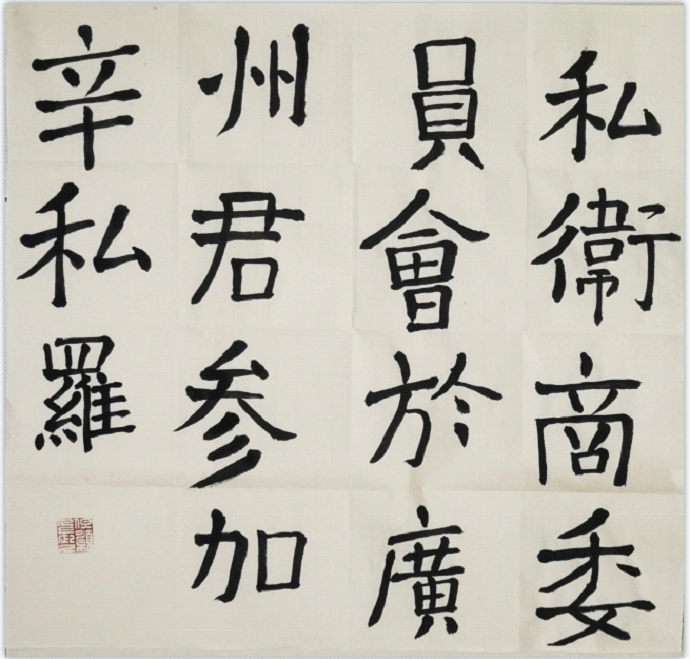 私衞商委
員會於廣
州君参加
辛私羅